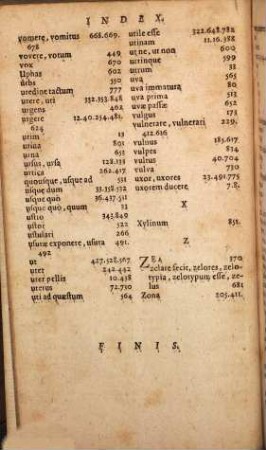 INDEX.
vomere, vomitus 668.669.
678
vovere, votum 449
vox 670
Uphas 602
urbs 350
uredine tactum 777
urere, uri 332.333.848
urgens 462
urgere 12.40.254.481.
624
urina 13
ursa 801
urna 631
ursus, ursa 128.133
urtica 262.417
quousque, usque ad 511
usque dum 33.358.532
usque quò 36.437.511
usque quò, quum 11
ustio 343.849
ustor 522
ustulari 266
usuræ exponere, usura 491.
492
ut 427.528.567
uter 242.442
uter pellis 10.438
uterus 72.750
uti ad quæstum 564
utile esse 322.648.784
utinam 11.16.388
ut ne, ut non 600
utrinque 599
utrum 33
uva 565
uva immatura 80
uva prima 513
uvæ passæ 652
vulgus 171
vulnerare, vulnerari 229.
412.636
vultus 185.617
vulpes 814
vultus 40.704
vulva 730
uxor, uxores 23.491.775
uxorem ducere 7.8.
X
Xylinum 851.
Z
ZEA 370
zelare fecit, zelores, zelo-
typia, zelotypum esse, ze-
lus 681
Zona 205.411.
FINIS.